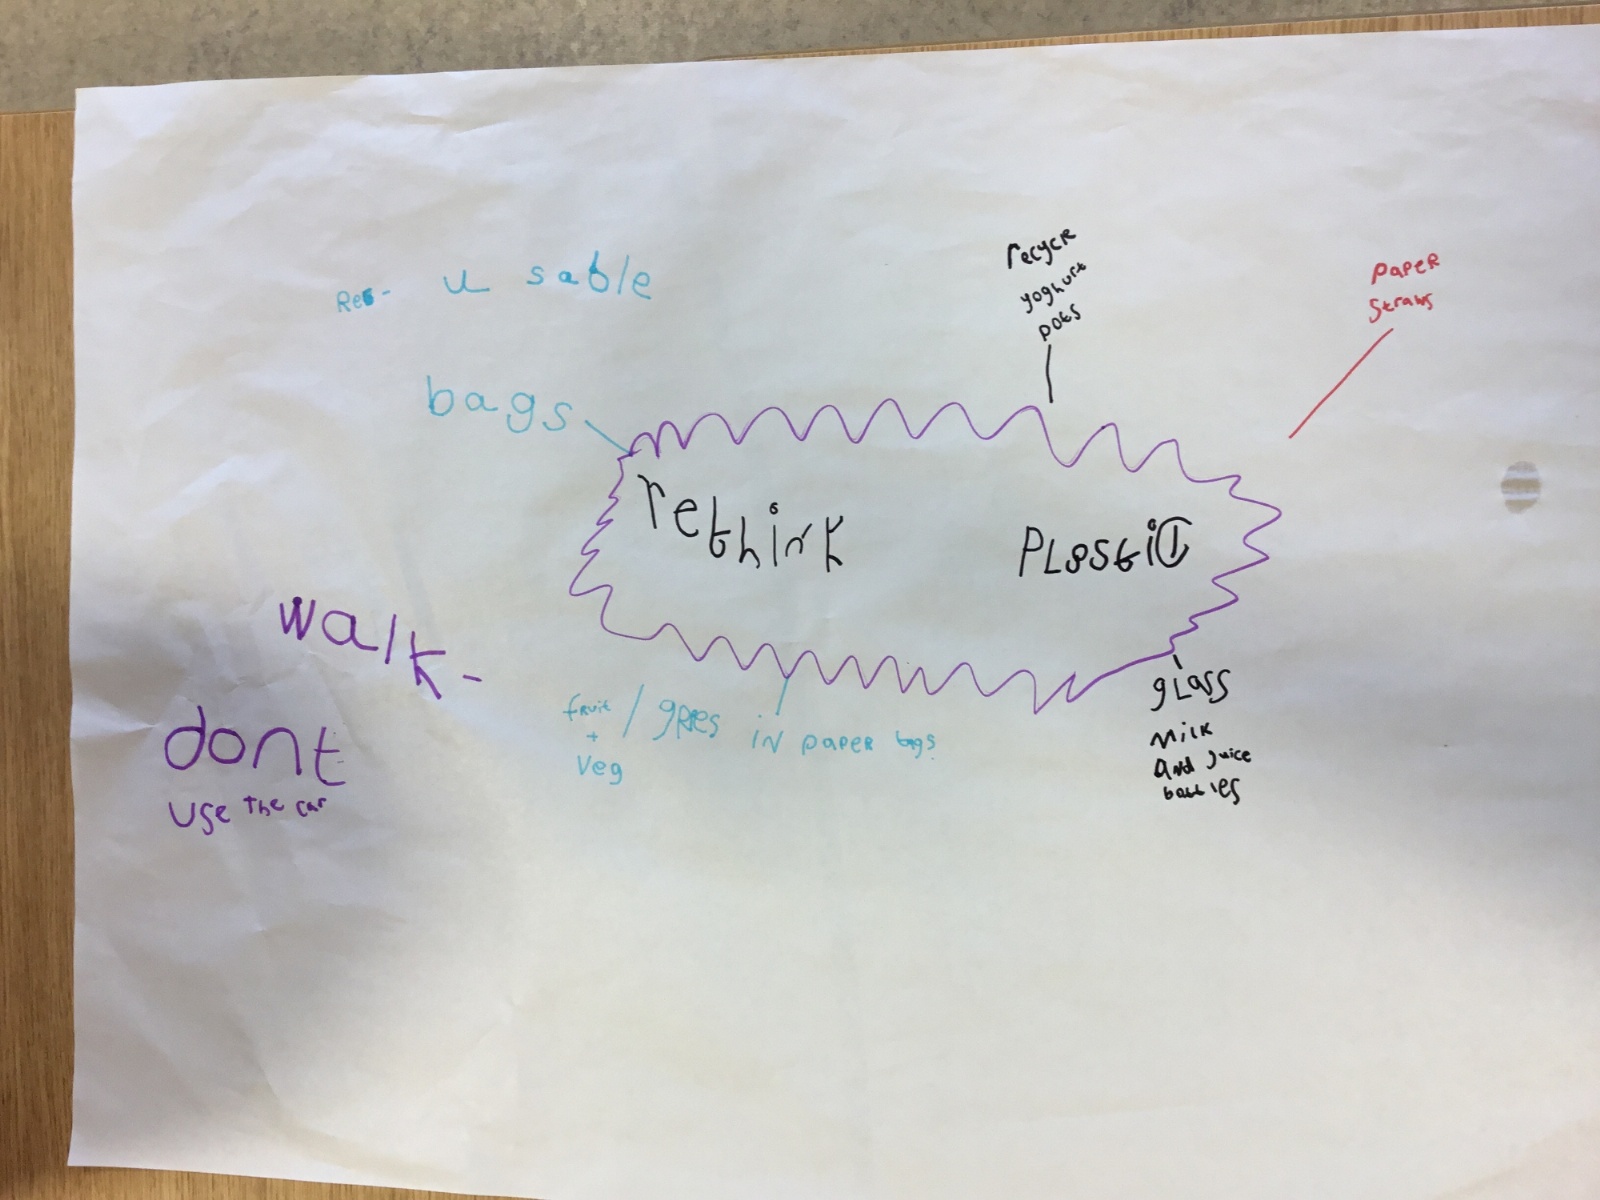 Re- u sable
bags
recycle
yoghurt
pots
paper
straws
rethink Plastic
walk -
dont
use the car
fruit / in paper bags
+
veg
glass
milk
and juice
bottles